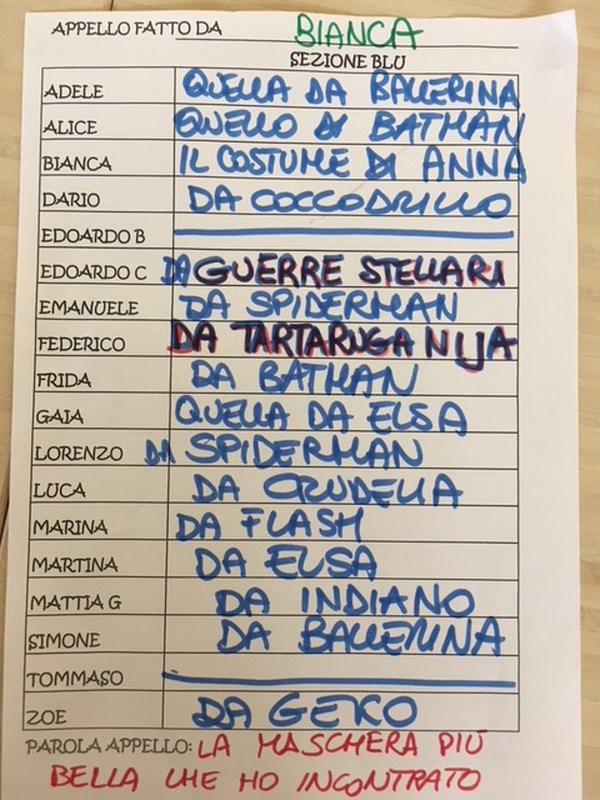 APPELLO FATTO DA BIANCA
SEZIONE BLU
ADELE QUELLA DA BALLERINA
ALICE QUELLO DI BATMAN
BIANCA IL COSTUME DI ANNA
DARIO DA COCCODRILLO
EDOARDO B
EDOARDO C DA GUERRE STELLARI
EMANUELE DA SPIDERMAN
FEDERICO DA TARTARUGA NIJA
FRIDA DA BATMAN
GAIA QUELLA DA ELSA
LORENZO DA SPIDERMAN
LUCA DA CRUDELIA
MARINA DA FLASH
MARTINA DA ELSA
MATTIA G DA INDIANO
SIMONE DA BALLERINA
TOMMASO
ZOE DA GEKO
PAROLA APPELLO: LA MASCHERA PIÙ
BELLA CHE HO INCONTRATO